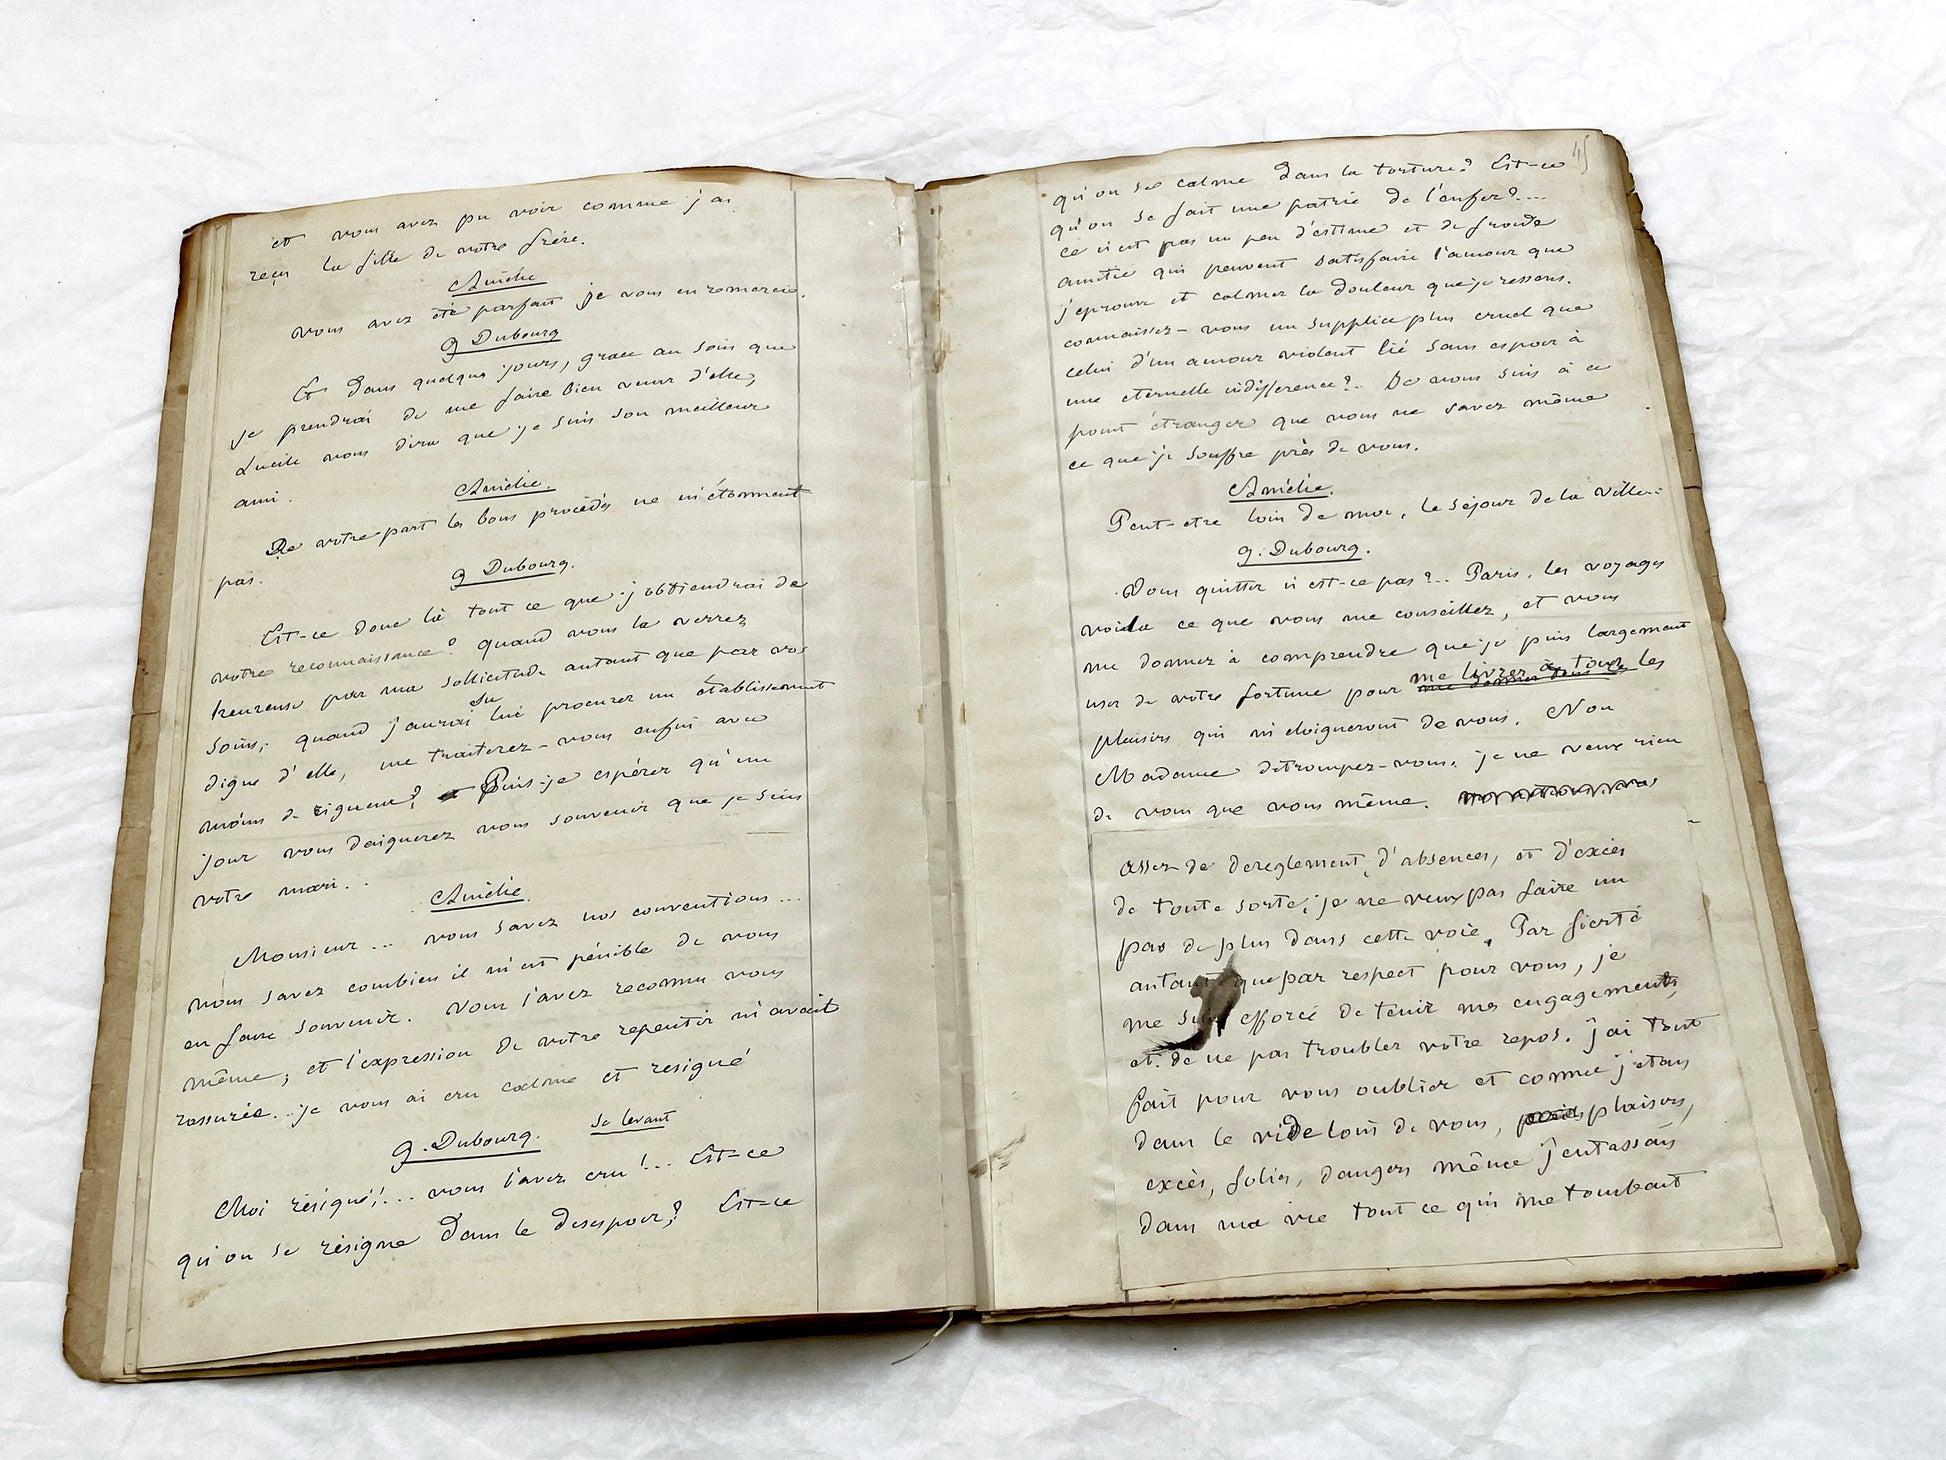 et vous avez pu voir comme j'ai
reçu la fille de votre frère.
Amélie
vous avez été parfait je vous en remercie.
g Dubourg
Et dans quelque jours, grace au soin que
je prendrai de me faire bien venir d'elle,
Lucile vous dira que je suis son meilleur
ami.
Amélie.
De votre part les bons procédés ne m'étonnent
pas.
g Dubourg.
Est-ce donc là tout ce que j'obtiendrai de
votre reconnaissance? quand vous la verrez
heureuse par ma sollicitude autant que par vos
soins; quand j'aurai su lui procurer un établissement
digne d'elle, me traiterez-vous enfin avec
moins de rigueur? Puis-je espérer qu'un
jour vous daignerez vous souvenir que je suis
votre mari..
Amélie.
Monsieur... vous savez nos conventions...
vous savez combien il m'est pénible de vous
en faire souvenir. Vous l'avez reconnu vous
même; et l'expression de votre repentir m'avait
rassurée.. je vous ai cru calme et resigné
g. Dubourg. se levant
Moi résigné!... vous l'avez cru!... Est-ce
qu'on se résigne dans le desespoir? Est-ce
45
qu'on se calme dans la torture? Est-ce
qu'on se fait une patrie de l'enfer?....
ce n'est pas un peu d'estime et de froide
amitié qui peuvent satisfaire l'amour que
j'eprouve et calmer la douleur que je ressens.
connaissez-vous un supplice plus cruel que
celui d'un amour violent lié sans espoir à
une eternelle indifference?.. vous suis à ce
point étranger que vous ne savez même
ce que je souffre près de vous.
Amélie.
Peut-etre loin de moi, le séjour de la ville...
g. Dubourg.
Vous quitter n'est-ce pas?.. Paris, les voyages
voila ce que vous me conseillez, et vous
me donnez à comprendre que je puis largement
user de votre fortune pour me livrer à tous les
plaisirs qui m'eloigneront de vous. Non
Madame detrompez-vous. je ne veux rien
de vous que vous même.
assez de dereglement d'absences, et d'excès
de toute sorte; je ne veux pas faire un
pas de plus dans cette voie. Par fierté
autant que par respect pour vous, je
me suis efforcé de tenir mes engagements
et de ne pas troubler votre repos. j'ai tout
fait pour vous oublier et comme j'etais
dans le vide loin de vous, plaisirs,
excès, folies, dangers même j'entassais
dans ma vie tout ce qui me tombait